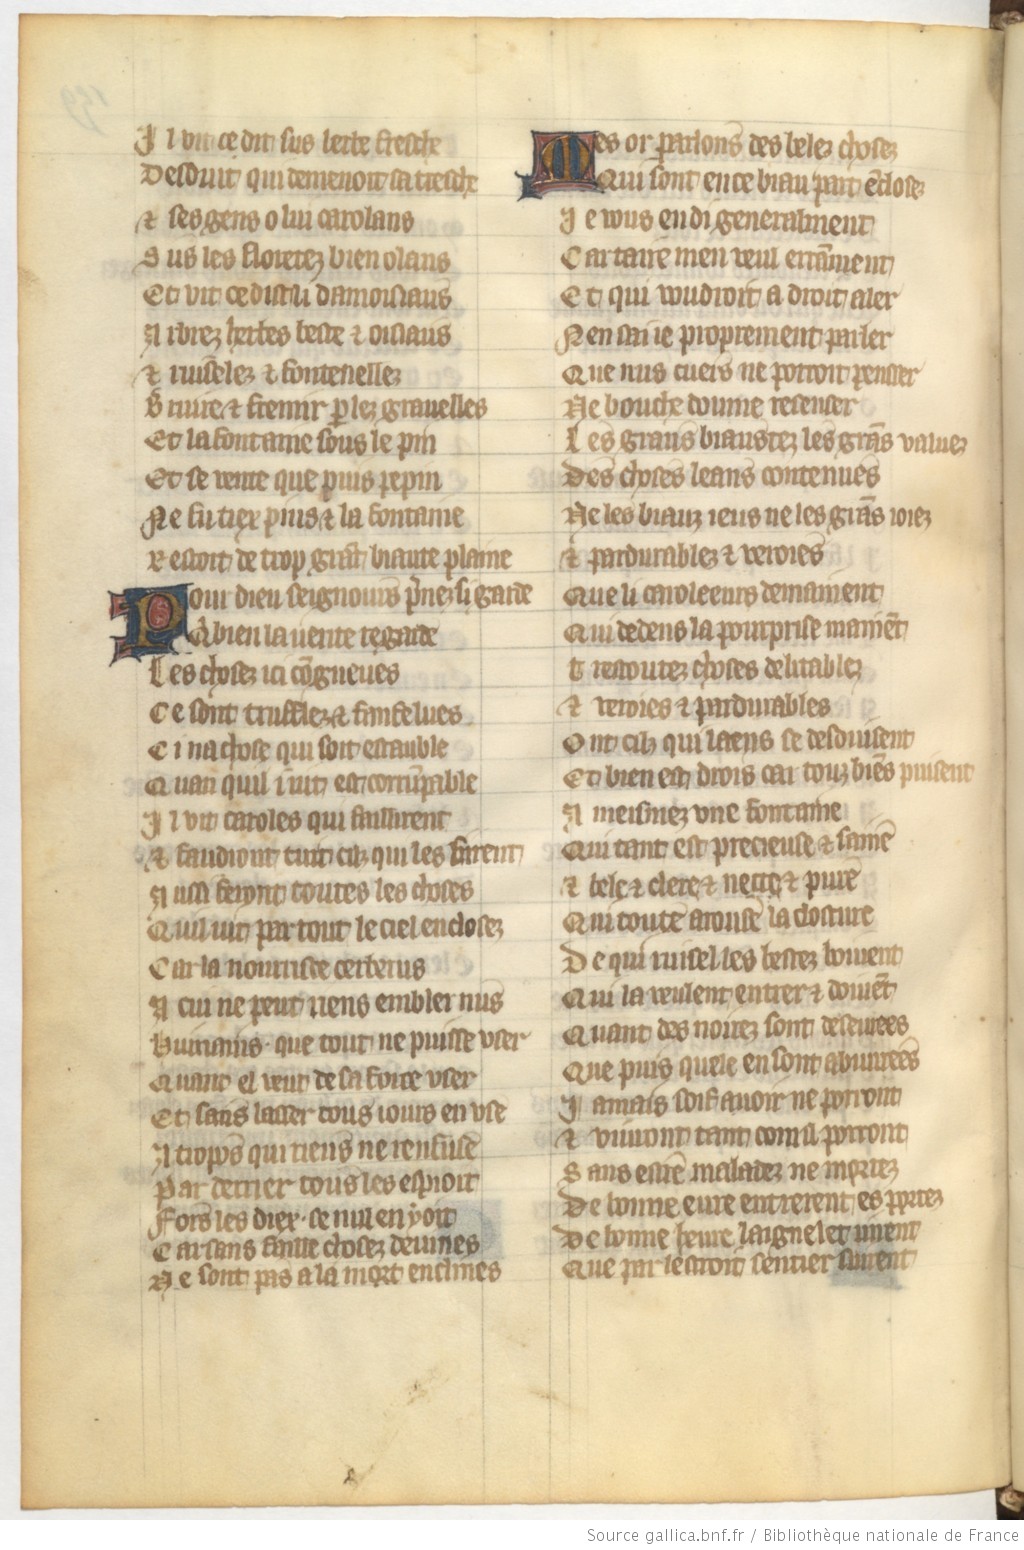 Il vit ce dit sus lerbe fresche
Desduit qui demenoit sa tresche
⁊ ses gens o lui carolans
Sus les floretez bien olans
Et vit ce dist li damoisiaus
Arbrez herbes beste ⁊ oisiaus
⁊ ruiselez ⁊ fontenellez
Bruire ⁊ fremir p̲ lez grauelles
Et la fontaine sous le pin
Et se vente que puis pepin
Ne fu tiex pins ⁊ la fontaine
Restoit de trop grāt biaute plaine
Pour dieu seignours p̄nez si garde
Q̄ bien la uerite regarde
Les chosez ici cōgneues
Ce sont trufflez ⁊ fanfelues
Ci na chose qui soit estauble
Quan quil i uit est corrūpable
Il vit caroles qui faillirent
⁊ faudront tuit cilz qui les firent
Aussi feront toutes les choses
Quil uit par tout le ciel enclosez
Car la nourrisce cerberus
A cui ne peut riens embler nus
Humains · que tout ne puisse vser
Quant el veut de sa force vser
Et sans lasser tous iours en vse
Atropos qui riens ne renfuse
Par derrier tous les espioit
Fors les diex · se nul en y oit
Car sans faille chosez deuines
Ne sont pas a la mort enclines
Mes or parlons des belez chosez
Qui sont en ce biau parc ēclosez
Je vous en di generalment
Car taire men veul errāment
Et qui voudroit a droit aler
Nen sai ie proprement parler
Que nus cuers ne porroit penser
Ne bouche domme recenser
Les grans biautez les grās values
Des choses leans contenues
Ne les biauz ieus ne les grās ioiez
⁊ pardurablez ⁊ veroies
Que li caroleeurs demainent
Qui dedens la pourprise mainēt
Trestoutez choses delitablez
⁊ veroies ⁊ pardurables
Ont cilz qui laens se desduisent
Et bien est drois car touz biēs puisent
A meismez vne fontaine
Qui tant est precieuse ⁊ saine
⁊ bele ⁊ clere ⁊ nette ⁊ pure
Qui toute arouse la closture
De qui ruisel les bestez boiuent
Qui la veulent entrer ⁊ doiuēt
Quant des noirez sont deseurees
Que puis quele en sont abuurees
Jamais soif auoir ne porront
⁊ viuront tant com il porront
Sans estre maladez ne mortez
De bonne eure entrerent es portez
De bonne heure laignelet uirent
Que par lestroit sentier suirent
Source gallica.bnf.fr / Bibliothèque nationale de France